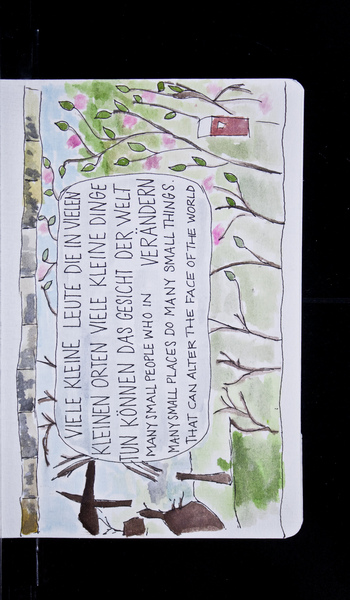 VIELE KLEINE LEUTE DIE IN VIELEN
KLEINEN ORTEN VIELE KLEINE DINGE
TUN KÖNNEN DAS GESICHT DER WELT
VERÄNDERN
MANY SMALL PEOPLE WHO IN
MANY SMALL PLACES DO MANY SMALL THINGS.
THAT CAN ALTER THE FACE OF THE WORLD